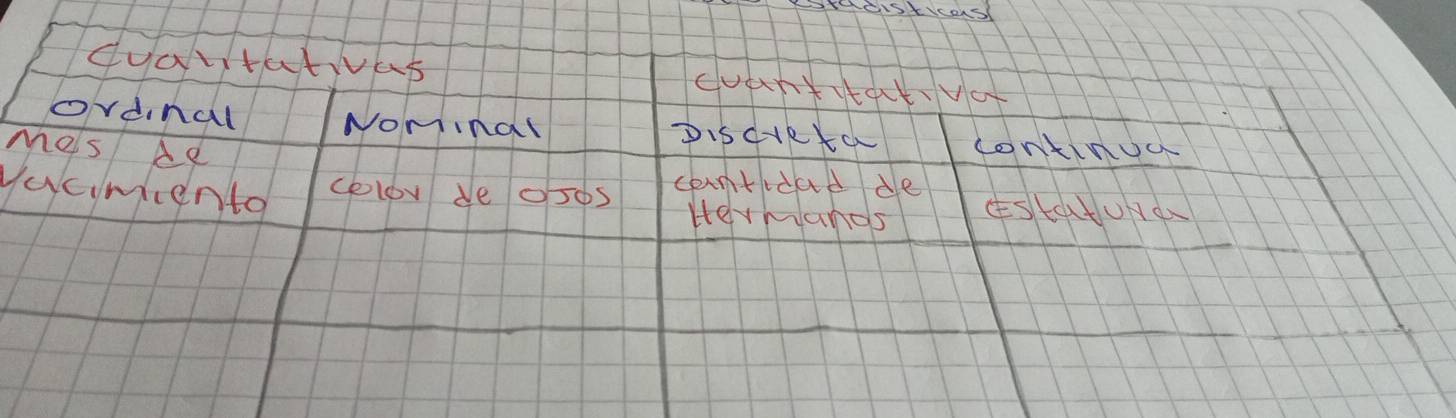 estadisticas
Cualitativas
cuantitativa
Ordinal
Nominal
Discreta
continua
Mes de
Nacimiento
color de ojos
cantidad de
Hermanos
Estatura